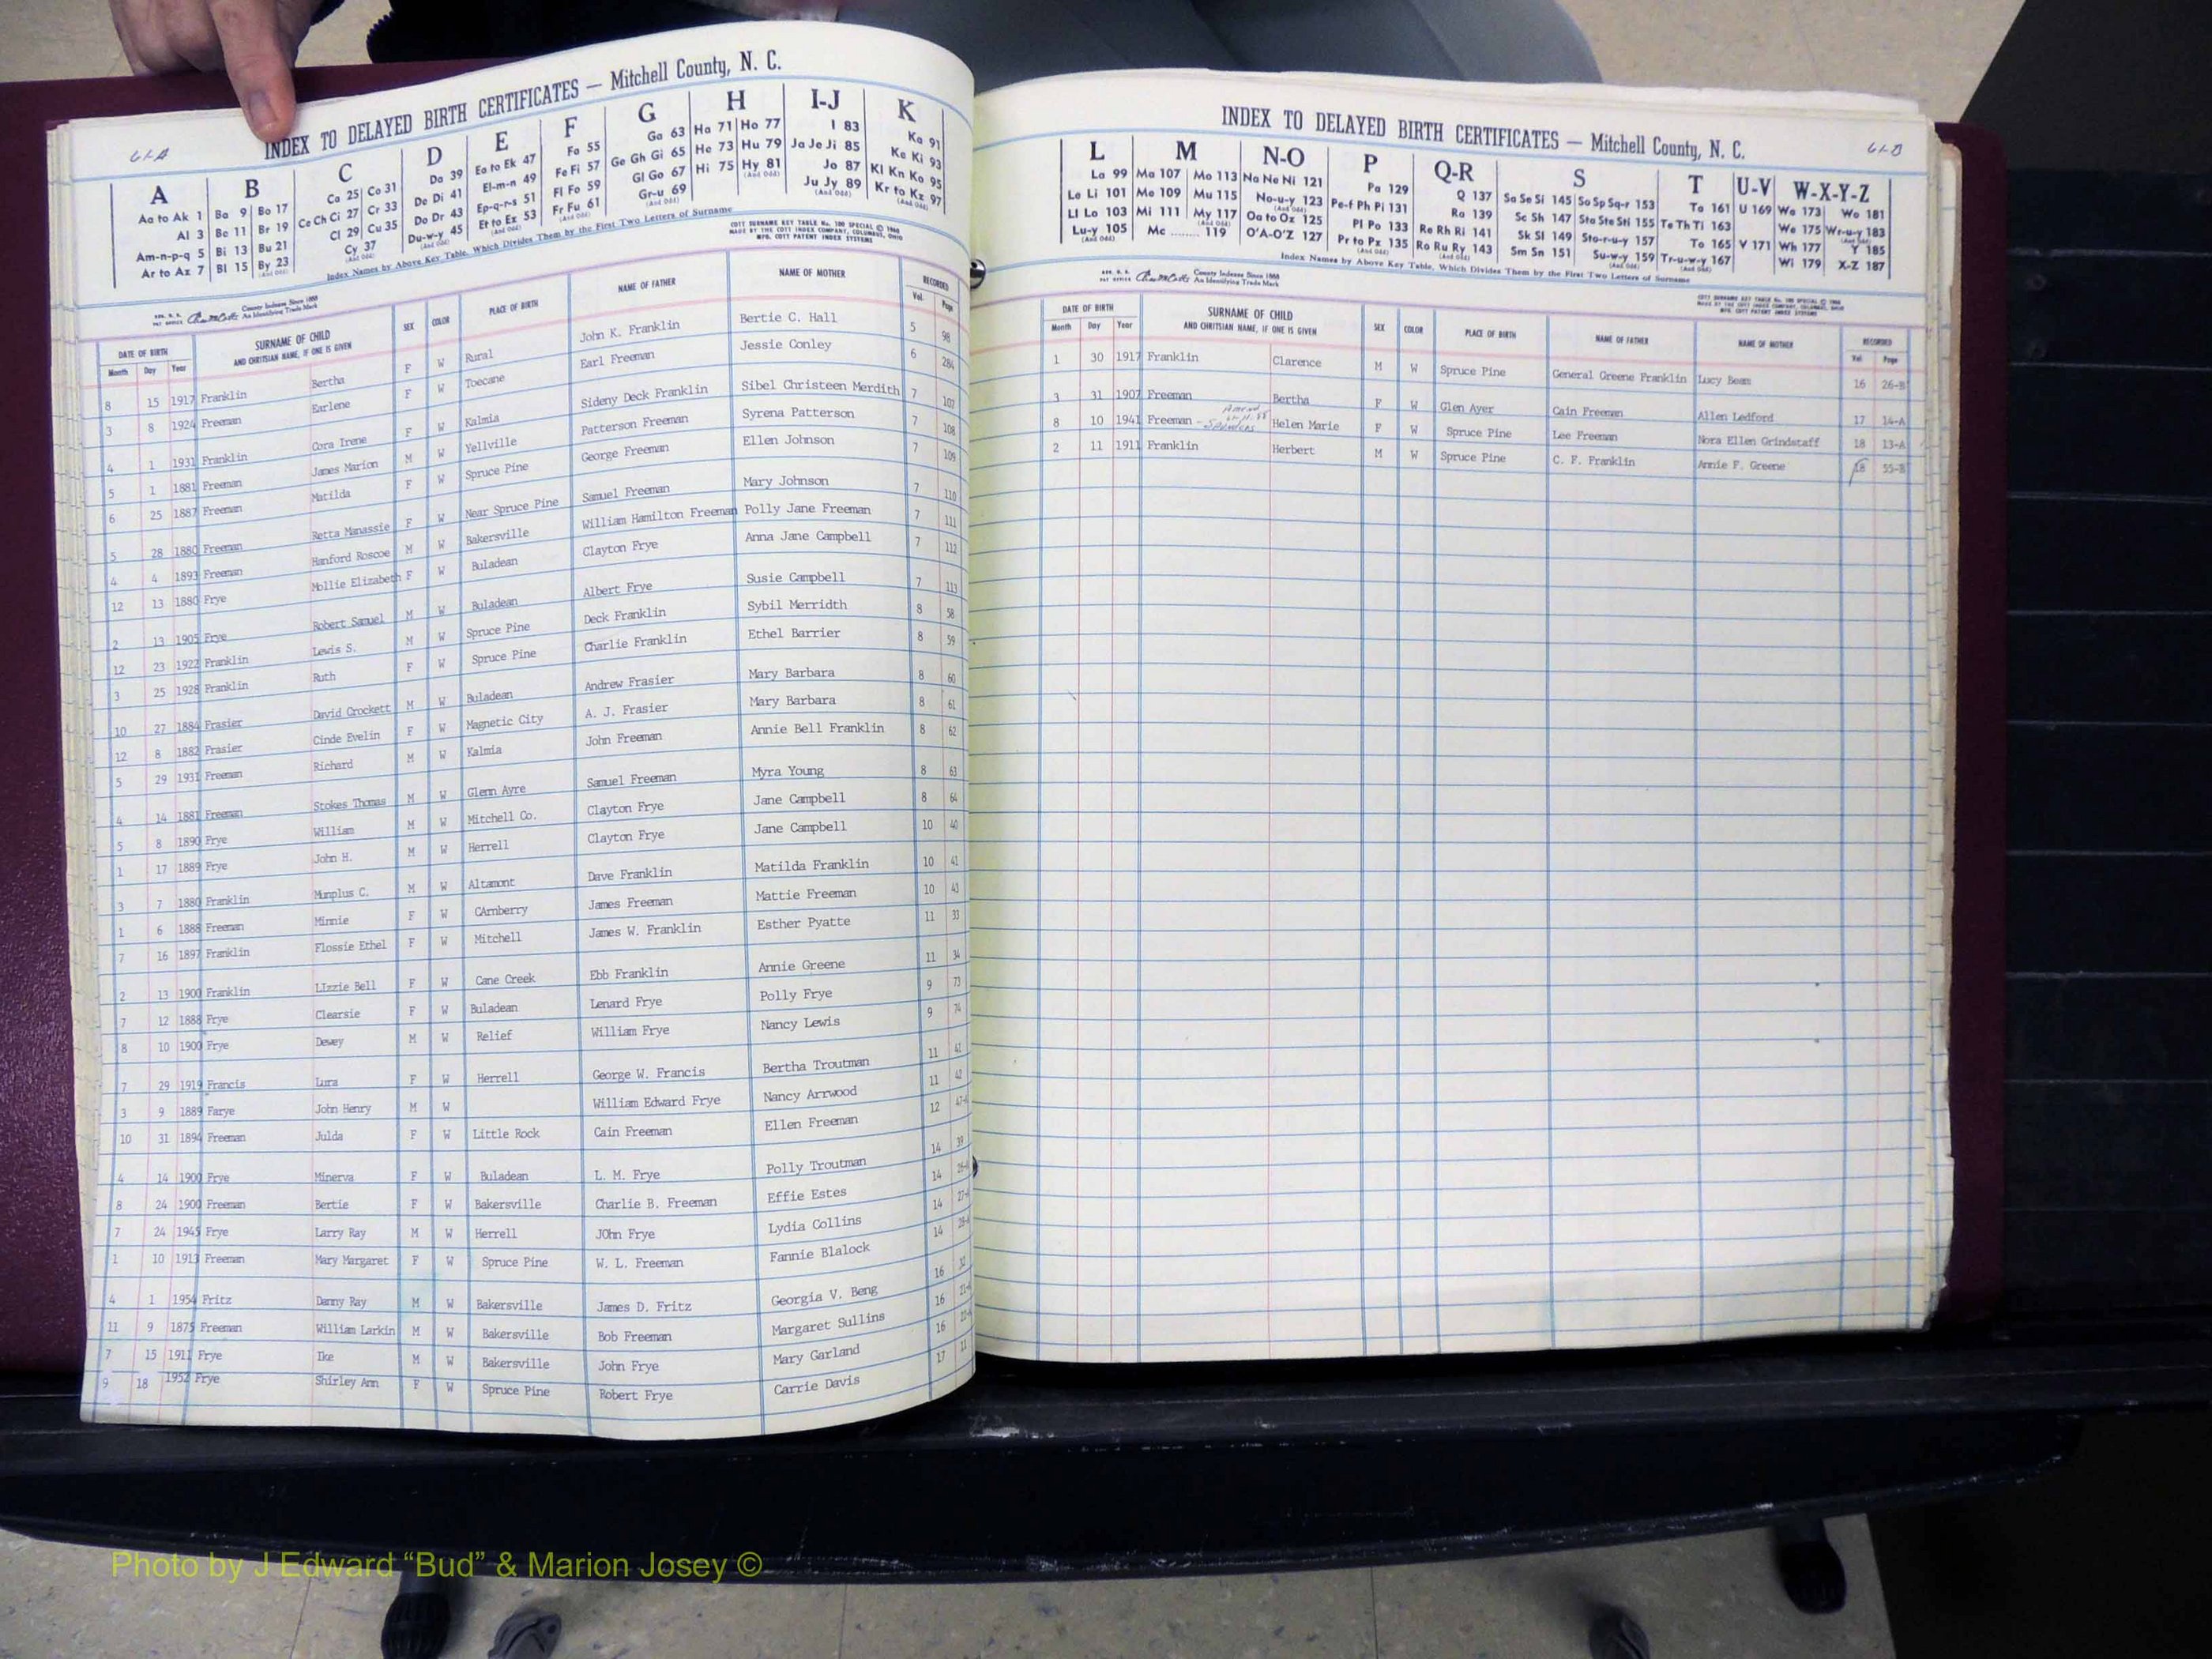 61-A
INDEX TO DELAYED BIRTH CERTIFICATES — Mitchell County, N. C.
A B C D E F G H I-J K
Aa to Ak 1 Ba 9 Bo 17 Ca 25 Co 31 Da 39 Ea to Ek 47 Fa 55 Ga 63 Ha 71 Ho 77 I 83 Ka 91
Al 3 Be 11 Br 19 Ce Ch Ci 27 Cr 33 De Di 41 El-m-n 49 Fe Fi 57 Ge Gh Gi 65 He 73 Hu 79 Ja Je Ji 85 Ke Ki 93
Am-n-p-q 5 Bi 13 Bu 21 Cl 29 Cu 35 Do Dr 43 Ep-q-r-s 51 Fl Fo 59 Gl Go 67 Hi 75 Hy 81 Jo 87 Kl Kn Ko 95
Ar to Az 7 Bl 15 By 23 Cy 37 Du-w-y 45 Et to Ez 53 Fr Fu 61 Gr-u 69 (And Odd) Ju Jy 89 Kr to Kz 97
Index Names by Above Key Table, Which Divides Them by the First Two Letters of Surname
COTT SURNAME KEY TABLE No. 100 SPECIAL © 1960
MADE BY THE COTT INDEX COMPANY, COLUMBUS, OHIO
MFG. COTT PATENT INDEX SYSTEMS
County Indexes Since 1888
An Identifying Trade Mark
DATE OF BIRTH SURNAME OF CHILD SEX COLOR PLACE OF BIRTH NAME OF FATHER NAME OF MOTHER RECORDED
Month Day Year AND CHRITSIAN NAME, IF ONE IS GIVEN Vol. Page
8 15 1917 Franklin Bertha F W Rural John K. Franklin Bertie C. Hall 5 98
3 8 1924 Freeman Earlene F W Toecane Earl Freeman Jessie Conley 6 284
4 1 1931 Franklin Cora Irene F W Kalmia Sideny Deck Franklin Sibel Christeen Merdith 7 107
5 1 1881 Freeman James Marion M W Yellville Patterson Freeman Syrena Patterson 7 108
6 25 1887 Freeman Matilda F W Spruce Pine George Freeman Ellen Johnson 7 109
5 28 1880 Freeman Retta Manassie F W Near Spruce Pine Samuel Freeman Mary Johnson 7 110
4 4 1893 Freeman Hanford Roscoe M W Bakersville William Hamilton Freeman Polly Jane Freeman 7 111
12 13 1880 Frye Mollie Elizabeth F W Buladean Clayton Frye Anna Jane Campbell 7 112
2 13 1905 Frye Robert Samuel M W Buladean Albert Frye Susie Campbell 7 113
12 23 1922 Franklin Lewis S. M W Spruce Pine Deck Franklin Sybil Merridth 8 58
3 25 1928 Franklin Ruth F W Spruce Pine Charlie Franklin Ethel Barrier 8 59
10 27 1884 Frasier David Crockett M W Buladean Andrew Frasier Mary Barbara 8 60
12 8 1882 Frasier Cinde Evelin F W Magnetic City A. J. Frasier Mary Barbara 8 61
5 29 1931 Freeman Richard M W Kalmia John Freeman Annie Bell Franklin 8 62
4 14 1881 Freeman Stokes Thomas M W Glenn Ayre Samuel Freeman Myra Young 8 63
5 8 1890 Frye William M W Mitchell Co. Clayton Frye Jane Campbell 8 64
1 17 1889 Frye John H. M W Herrell Clayton Frye Jane Campbell 10 40
3 7 1880 Franklin Munplus C. M W Altamont Dave Franklin Matilda Franklin 10 41
1 6 1888 Freeman Minnie F W CArnberry James Freeman Mattie Freeman 10 43
7 16 1897 Franklin Flossie Ethel F W Mitchell James W. Franklin Esther Pyatte 11 33
2 13 1900 Franklin LIzzie Bell F W Cane Creek Ebb Franklin Annie Greene 11 34
7 12 1888 Frye Clearsie F W Buladean Lenard Frye Polly Frye 9 73
8 10 1900 Frye Dewey M W Relief William Frye Nancy Lewis 9 74
7 29 1919 Francis Lura F W Herrell George W. Francis Bertha Troutman 11 41
3 9 1889 Farye John Henry M W William Edward Frye Nancy Arrwood 11 42
10 31 1894 Freeman Julda F W Little Rock Cain Freeman Ellen Freeman 12
4 14 1900 Frye Minerva F W Buladean L. M. Frye Polly Troutman 14 39
8 24 1900 Freeman Bertie F W Bakersville Charlie B. Freeman Effie Estes 14
7 24 1945 Frye Larry Ray M W Herrell JOhn Frye Lydia Collins 14
1 10 1913 Freeman Mary Margaret F W Spruce Pine W. L. Freeman Fannie Blalock 14
4 1 1954 Fritz Danny Ray M W Bakersville James D. Fritz Georgia V. Beng 16
11 9 1875 Freeman William Larkin M W Bakersville Bob Freeman Margaret Sullins 16
7 15 1911 Frye Ike M W Bakersville John Frye Mary Garland 16
9 18 1952 Frye Shirley Ann F W Spruce Pine Robert Frye Carrie Davis 17
61-B
INDEX TO DELAYED BIRTH CERTIFICATES — Mitchell County, N. C.
L M N-O P Q-R S T U-V W-X-Y-Z
La 99 Ma 107 Mo 113 Na Ne Ni 121 Pa 129 Q 137 Sa Se Si 145 So Sp Sq-r 153 Ta 161 U 169 Wa 173 Wo 181
Le Li 101 Me 109 Mu 115 No-u-y 123 Pe-f Ph Pi 131 Ra 139 Sc Sh 147 Sta Ste Sti 155 Te Th Ti 163 We 175 Wr-u-y 183
Ll Lo 103 Mi 111 My 117 Oa to Oz 125 Pl Po 133 Re Rh Ri 141 Sk Sl 149 Sto-r-u-y 157 To 165 V 171 Wh 177 Y 185
Lu-y 105 Mc ........ 119 O'A-O'Z 127 Pr to Pz 135 Ro Ru Ry 143 Sm Sn 151 Su-w-y 159 Tr-u-w-y 167 Wi 179 X-Z 187
Index Names by Above Key Table, Which Divides Them by the First Two Letters of Surname
County Indexes Since 1888
An Identifying Trade Mark
COTT SURNAME KEY TABLE No. 100 SPECIAL © 1960
MADE BY THE COTT INDEX COMPANY, COLUMBUS, OHIO
MFG. COTT PATENT INDEX SYSTEMS
DATE OF BIRTH SURNAME OF CHILD SEX COLOR PLACE OF BIRTH NAME OF FATHER NAME OF MOTHER RECORDED
Month Day Year AND CHRITSIAN NAME, IF ONE IS GIVEN Vol Page
1 30 1917 Franklin Clarence M W Spruce Pine General Greene Franklin Lucy Beam 16 26-B
3 31 1907 Freeman Bertha F W Glen Ayer Cain Freeman Allen Ledford 17 14-A
8 10 1941 Freeman - Helen Marie F W Spruce Pine Lee Freeman Nora Ellen Grindstaff 18 13-A
2 11 1911 Franklin Herbert M W Spruce Pine C. F. Franklin Annie F. Greene 18 55-B
Photo by J Edward “Bud” & Marion Josey ©